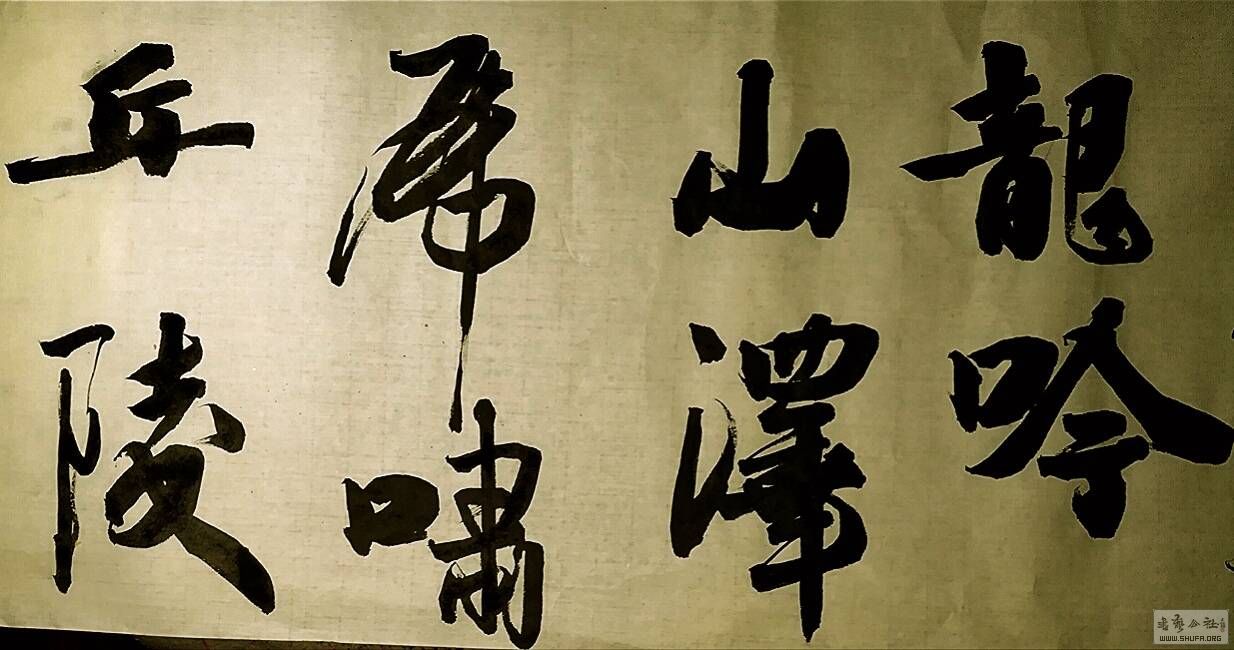 龍吟
山澤
虎嘯
丘陵
WWW.SHUFA.ORG